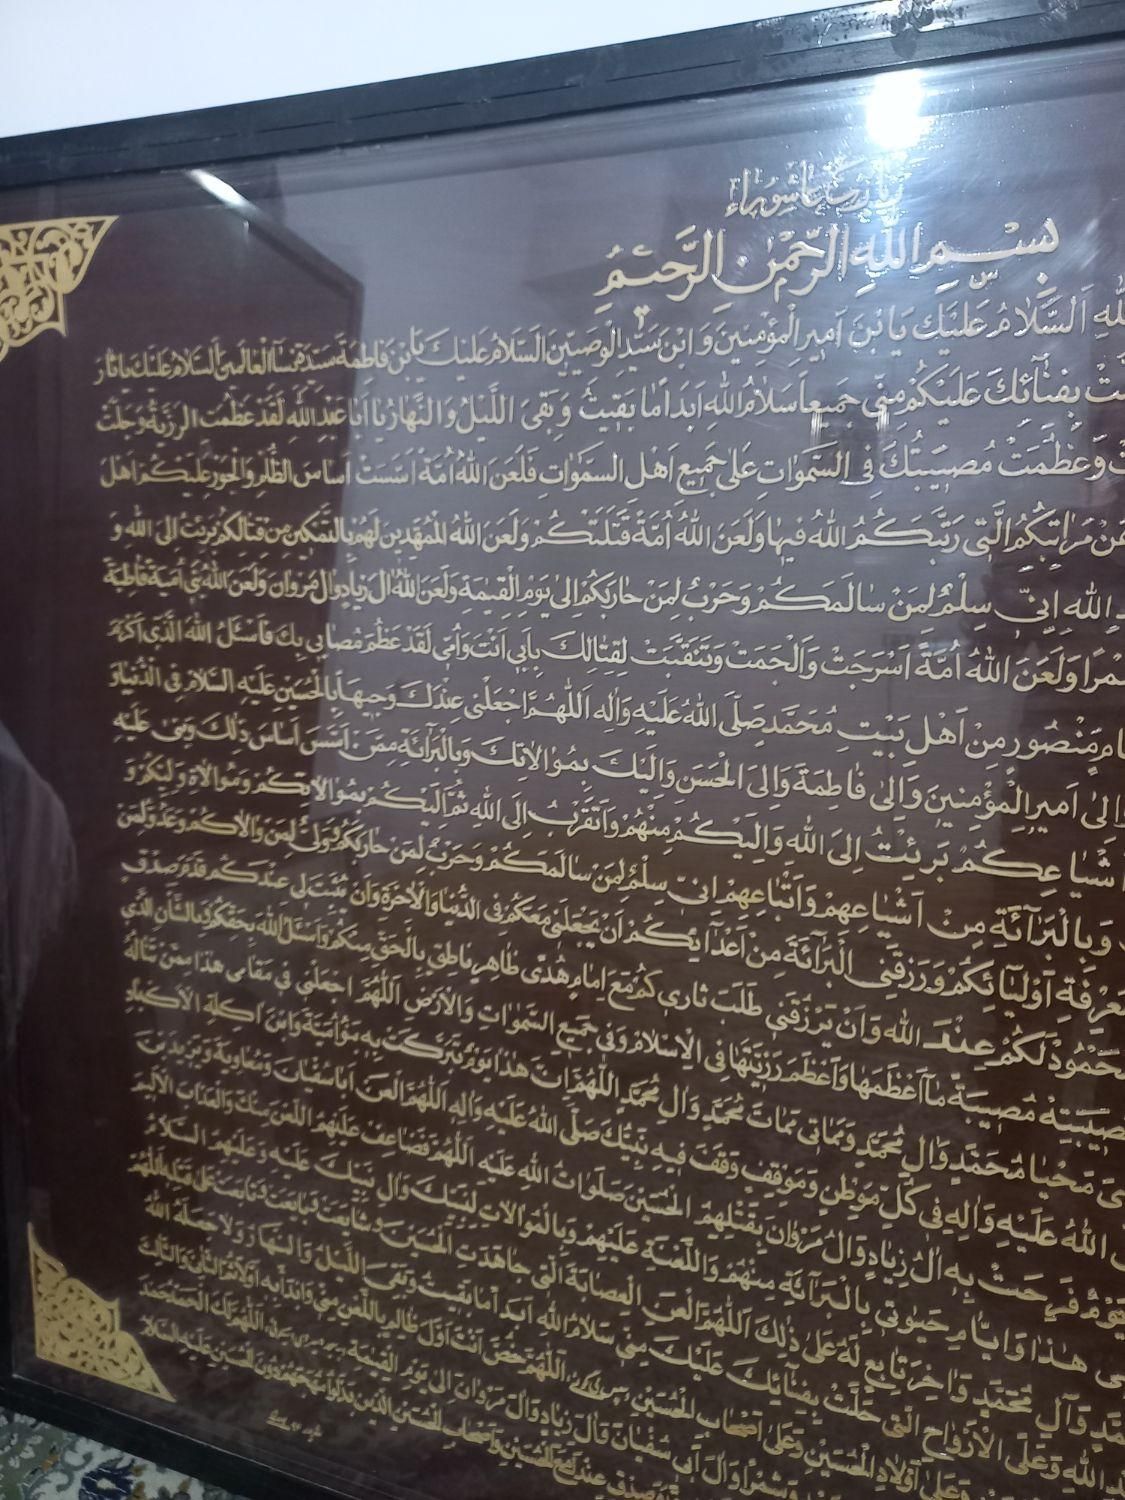 زيارت عاشوراء
بِسْمِ اللهِ الرَّحْمٰنِ الرَّحيْمُ
اَلسَّلامُ عَلَيْكَ يَا بْنَ اَميرِ الْمُؤْمِنينَ وَ ابْنَ سَيِّدِ الْوَصِيّينَ اَلسَّلامُ عَلَيْكَ يَا بْنَ فاطِمَةَ سَيِّدَةِ نِساءِ الْعالَمينَ اَلسَّلامُ عَلَيْكَ يا ثارَ
بِفِنٰائِكَ عَلَيْكُمْ مِنّي جَميعاً سَلامُ اللهِ اَبَداً ما بَقيتُ وَ بَقِىَ اللَّيْلُ وَ النَّهارُ يا اَبا عَبْدِ اللهِ لَقَدْ عَظُمَتِ الرَّزِيَّةُ وَ جَلَّتْ
وَ عَظُمَتْ مُصيبَتُكَ فِي السَّمٰواتِ عَلىٰ جَميعِ اَهْلِ السَّمٰواتِ فَلَعَنَ اللهُ اُمَّةً اَسَّسَتْ اَساسَ الظُّلْمِ وَ الْجَوْرِ عَلَيْكُمْ اَهْلَ
عَنْ مَراتِبِكُمُ الَّتي رَتَّبَكُمُ اللهُ فيها وَ لَعَنَ اللهُ اُمَّةً قَتَلَتْكُمْ وَ لَعَنَ اللهُ الْمُمَهِّدينَ لَهُمْ بِالتَّمْكينِ مِنْ قِتالِكُمْ بَرِئْتُ اِلَى اللهِ وَ
اللهِ اِنّي سِلْمٌ لِمَنْ سالَمَكُمْ وَ حَرْبٌ لِمَنْ حارَبَكُمْ اِلىٰ يَوْمِ الْقِيٰمَةِ وَ لَعَنَ اللهُ الَ زِيادٍ وَ الَ مَرْوانَ وَ لَعَنَ اللهُ بَني اُمَيَّةَ قاطِبَةً
وَ لَعَنَ اللهُ اُمَّةً اَسْرَجَتْ وَ اَلْجَمَتْ وَ تَنَقَّبَتْ لِقِتالِكَ بِاَبي اَنْتَ وَ اُمّي لَقَدْ عَظُمَ مُصابي بِكَ فَاَسْئَلُ اللهَ الَّذي اَكْرَمَ
مَنْصُورٍ مِنْ اَهْلِ بَيْتِ مُحَمَّدٍ صَلَّى اللهُ عَلَيْهِ وَ الِهِ اَللّهُمَّ اجْعَلْني عِنْدَكَ وَجيهاً بِالْحُسَيْنِ عَلَيْهِ السَّلامُ فِي الدُّنْيا وَ
اِلىٰ اَميرِ الْمُؤْمِنينَ وَ اِلىٰ فاطِمَةَ وَ اِلَى الْحَسَنِ وَ اِلَيْكَ بِمُوالاتِكَ وَ بِالْبَرائَةِ مِمَّنْ اَسَّسَ اَساسَ ذٰلِكَ وَ بَنىٰ عَلَيْهِ
اَشْياعِكُمْ بَرِئْتُ اِلَى اللهِ وَ اِلَيْكُمْ مِنْهُمْ وَ اَتَقَرَّبُ اِلَى اللهِ ثُمَّ اِلَيْكُمْ بِمُوالاتِكُمْ وَ مُوالاةِ وَلِيِّكُمْ وَ
وَ بِالْبَرائَةِ مِنْ اَشْياعِهِمْ وَ اَتْباعِهِمْ اِنّي سِلْمٌ لِمَنْ سالَمَكُمْ وَ حَرْبٌ لِمَنْ حارَبَكُمْ وَ وَلِيٌّ لِمَنْ والاكُمْ وَ عَدُوٌّ لِمَنْ
اَوْلِيائِكُمْ وَ رَزَقَنِي الْبَرائَةَ مِنْ اَعْدائِكُمْ اَنْ يَجْعَلَني مَعَكُمْ فِي الدُّنْيا وَ الْاخِرَةِ وَ اَنْ يُثَبِّتَ لي عِنْدَكُمْ قَدَمَ صِدْقٍ
لَكُمْ عِنْدَ اللهِ وَ اَنْ يَرْزُقَني طَلَبَ ثاري كُمْ مَعَ اِمامٍ هُدًى ظاهِرٍ ناطِقٍ بِالْحَقِّ مِنْكُمْ وَ اَسْئَلُ اللهَ بِحَقِّكُمْ وَ بِالشَّأْنِ الَّذي
مُصيبَةً ما اَعْظَمَها وَ اَعْظَمَ رَزِيَّتَها فِي الْاِسْلامِ وَ في جَميعِ السَّمٰواتِ وَ الْاَرْضِ اَللّهُمَّ اجْعَلْني في مَقامي هٰذا مِمَّنْ تَنالُهُ
مَحْيا مُحَمَّدٍ وَ الِ مُحَمَّدٍ وَ مَماتي مَماتَ مُحَمَّدٍ وَ الِ مُحَمَّدٍ اَللّهُمَّ اِنَّ هٰذا يَوْمٌ تَبَرَّكَتْ بِهِ بَنُو اُمَيَّةَ وَ ابْنُ اكِلَةِ الْاَكْبادِ
اللهُ عَلَيْهِ وَ الِهِ في كُلِّ مَوْطِنٍ وَ مَوْقِفٍ وَقَفَ فيهِ نَبِيُّكَ صَلَّى اللهُ عَلَيْهِ وَ الِهِ اَللّهُمَّ الْعَنْ اَبا سُفْيانَ وَ مُعاوِيَةَ وَ يَزيدَ بْنَ
فَرِحَتْ بِهِ الُ زِيادٍ وَ الُ مَرْوانَ بِقَتْلِهِمُ الْحُسَيْنَ صَلَواتُ اللهِ عَلَيْهِ اَللّهُمَّ فَضاعِفْ عَلَيْهِمُ اللَّعْنَ مِنْكَ وَ الْعَذابَ الْاَليمَ
هٰذا وَ اَيّامِ حَيوتي بِالْبَرائَةِ مِنْهُمْ وَ اللَّعْنَةِ عَلَيْهِمْ وَ بِالْمُوالاتِ لِنَبِيِّكَ وَ الِ نَبِيِّكَ عَلَيْهِ وَ عَلَيْهِمُ السَّلامُ
وَ الِ مُحَمَّدٍ وَ اخِرَ تابِعٍ لَهُ عَلىٰ ذٰلِكَ اَللّهُمَّ الْعَنِ الْعِصابَةَ الَّتي جاهَدَتِ الْحُسَيْنَ وَ شايَعَتْ وَ بايَعَتْ وَ تابَعَتْ عَلىٰ قَتْلِهِ اَللّهُمَّ
اللهِ وَ عَلَى الْاَرْواحِ الَّتي حَلَّتْ بِفِنائِكَ عَلَيْكَ مِنّي سَلامُ اللهِ اَبَداً ما بَقيتُ وَ بَقِيَ اللَّيْلُ وَ النَّهارُ وَ لا جَعَلَهُ اللهُ
وَ عَلىٰ اَوْلادِ الْحُسَيْنِ وَ عَلىٰ اَصْحابِ الْحُسَيْنِ اَللّهُمَّ خُصَّ اَنْتَ اَوَّلَ ظالِمٍ بِاللَّعْنِ مِنّي وَ ابْدَأْ بِهِ اَوَّلاً ثُمَّ الثّانِيَ وَ الثّالِثَ
وَ شِمْراً وَ الَ اَبي سُفْيانَ وَ الَ زِيادٍ وَ الَ مَرْوانَ اِلىٰ يَوْمِ الْقِيٰمَةِ اَللّهُمَّ لَكَ الْحَمْدُ
صِدْقٍ عِنْدَكَ مَعَ الْحُسَيْنِ وَ اَصْحابِ الْحُسَيْنِ الَّذينَ بَذَلُوا مُهَجَهُمْ دُونَ الْحُسَيْنِ عَلَيْهِ السَّلامُ